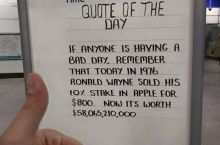 Time
QUOTE OF THE
DAY
IF ANYONE IS HAVING A
BAD DAY, REMEMBER
THAT TODAY IN 1976
RONALD WAYNE SOLD HIS
10% STAKE IN APPLE FOR
$800. NOW IT'S WORTH
$58,065,210,000